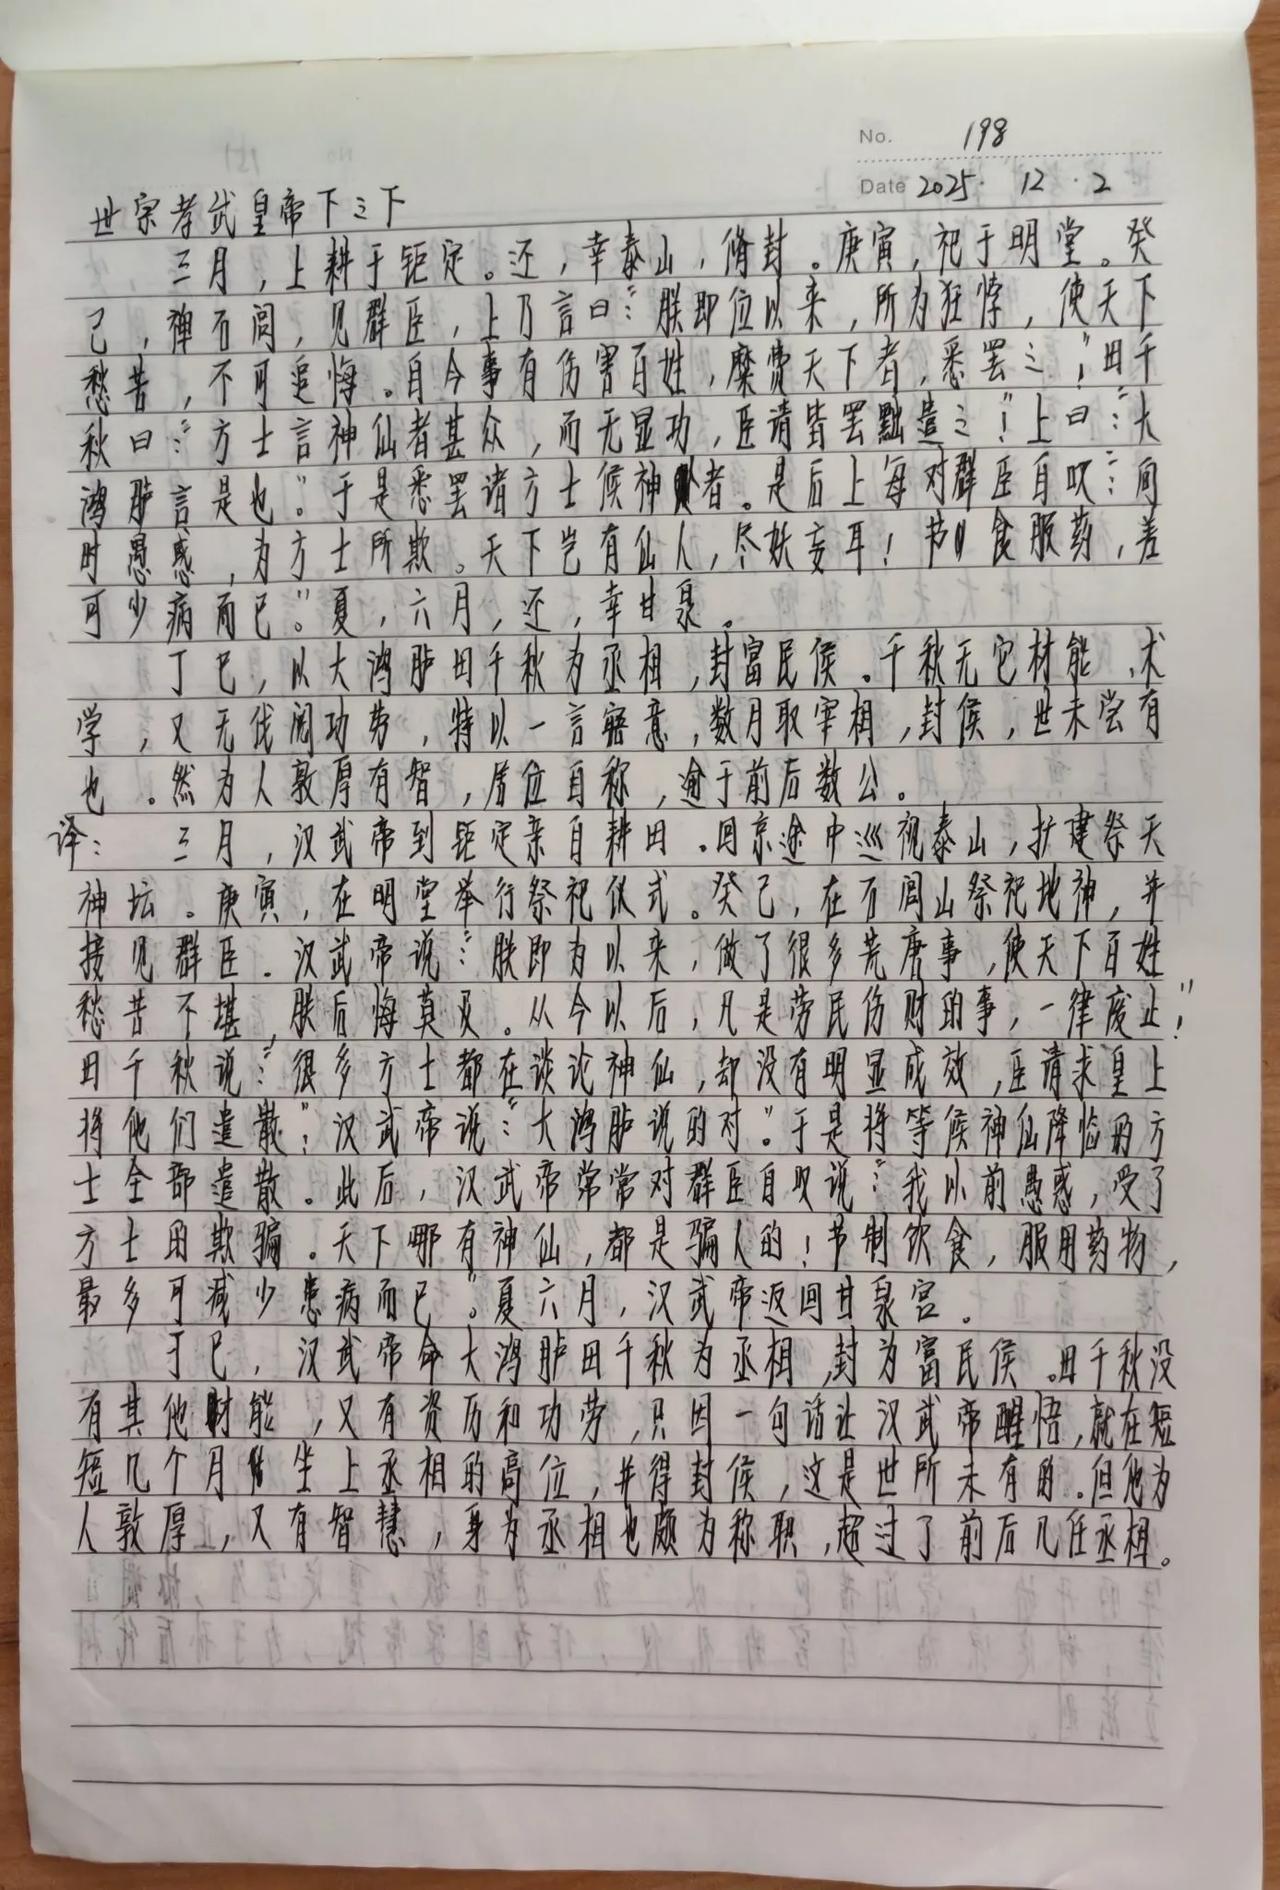 No. 198
Date 2025. 12. 2
世宗孝武皇帝下之下
三月，上耕于钜定。还，幸泰山，脩封。庚寅，祀于明堂。癸
巳，禅石闾，见群臣，上乃言曰：“朕即位以来，所为狂悖，使天下
愁苦，不可追悔。自今事有伤害百姓，糜费天下者，悉罢之！”田千
秋曰：“方士言神仙者甚众，而无显功，臣请皆罢黜遣之！”上曰：“大
鸿胪言是也。”于是悉罢诸方士候神者。是后上每对群臣自叹：“向
时愚惑，为方士所欺。天下岂有仙人，尽妖妄耳！节食服药，差
可少病而已”。夏，六月，还，幸甘泉。
丁巳，以大鸿胪田千秋为丞相，封富民侯。千秋无它材能、术
学，又无伐阅功劳，特以一言寤意，数月取宰相，封侯，世未尝有
也。然为人敦厚有智，居位自称，逾于前后数公。
译：三月，汉武帝到钜定亲自耕田。回京途中巡视泰山，扩建祭天
神坛。庚寅，在明堂举行祭祀仪式。癸巳，在石闾山祭祀地神，并
接见群臣。汉武帝说：“朕即为以来，做了很多荒唐事，使天下百姓
愁苦不堪，朕后悔莫及。从今以后，凡是劳民伤财的事，一律废止！”
田千秋说：“很多方士都在谈论神仙，却没有明显成效，臣请求皇上
将他们遣散！”汉武帝说：“大鸿胪说的对”。于是将等候神仙降临的方
士全部遣散。此后，汉武帝常常对群臣自叹说：“我以前愚惑，受了
方士的欺骗。天下哪有神仙，都是骗人的！节制饮食，服用药物，
最多可减少患病而已”。夏六月，汉武帝返回甘泉宫。
丁巳，汉武帝命大鸿胪田千秋为丞相，封为富民侯。田千秋没
有其他财能，又有资历和功劳，只因一句话让汉武帝醒悟，就在短
短几个月坐上丞相的高位，并得封侯，这是世所未有的。但他为
人敦厚，又有智慧，身为丞相也颇为称职，超过了前后几任丞相。